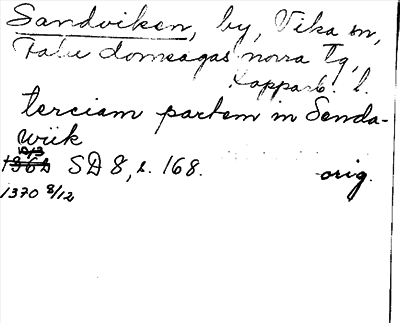 Sandviken, by, Vika sn,
Falu domsagas norra tg,
Kopparb. l.
terciam partem in Senda-
wiik
SD 8, s. 168. orig.
1370 8/12